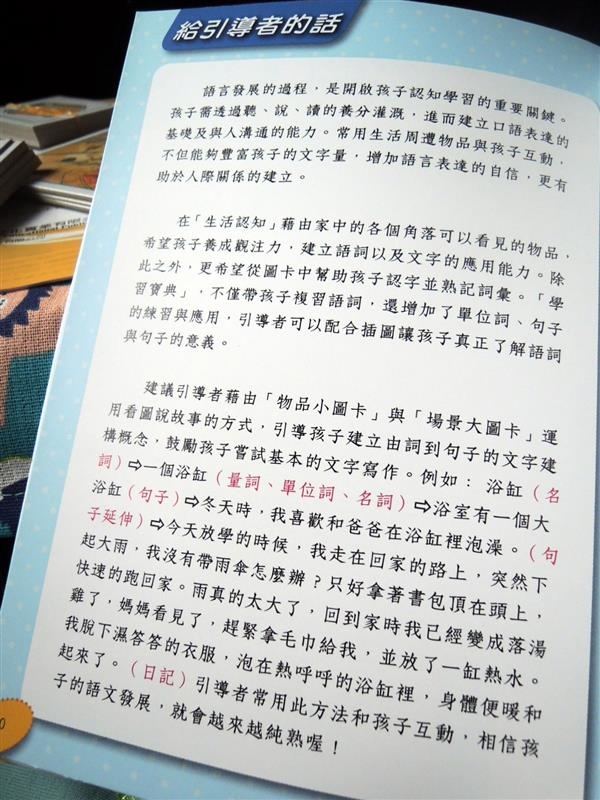 給引導者的話
語言發展的過程，是開啟孩子認知學習的重要關鍵。
孩子需透過聽、說、讀的養分灌溉，進而建立口語表達的
基礎及與人溝通的能力。常用生活周遭物品與孩子互動，
不但能夠豐富孩子的文字量，增加語言表達的自信，更有
助於人際關係的建立。
在「生活認知」藉由家中的各個角落可以看見的物品，
希望孩子養成觀注力，建立語詞以及文字的應用能力。除
此之外，更希望從圖卡中幫助孩子認字並熟記詞彙。「學
習寶典」，不僅帶孩子複習語詞，還增加了單位詞、句子
的練習與應用，引導者可以配合插圖讓孩子真正了解語詞
與句子的意義。
建議引導者藉由「物品小圖卡」與「場景大圖卡」運
用看圖說故事的方式，引導孩子建立由詞到句子的文字建
構概念，鼓勵孩子嘗試基本的文字寫作。例如：浴缸（名
詞）⇨一個浴缸（量詞、單位詞、名詞）⇨浴室有一個大
浴缸（句子）⇨冬天時，我喜歡和爸爸在浴缸裡泡澡。（句
子延伸）⇨今天放學的時候，我走在回家的路上，突然下
起大雨，我沒有帶雨傘怎麼辦？只好拿著書包頂在頭上，
快速的跑回家。雨真的太大了，回到家時我已經變成落湯
雞了，媽媽看見了，趕緊拿毛巾給我，並放了一缸熱水。
我脫下濕答答的衣服，泡在熱呼呼的浴缸裡，身體便暖和
起來了。（日記）引導者常用此方法和孩子互動，相信孩
子的語文發展，就會越來越純熟喔！